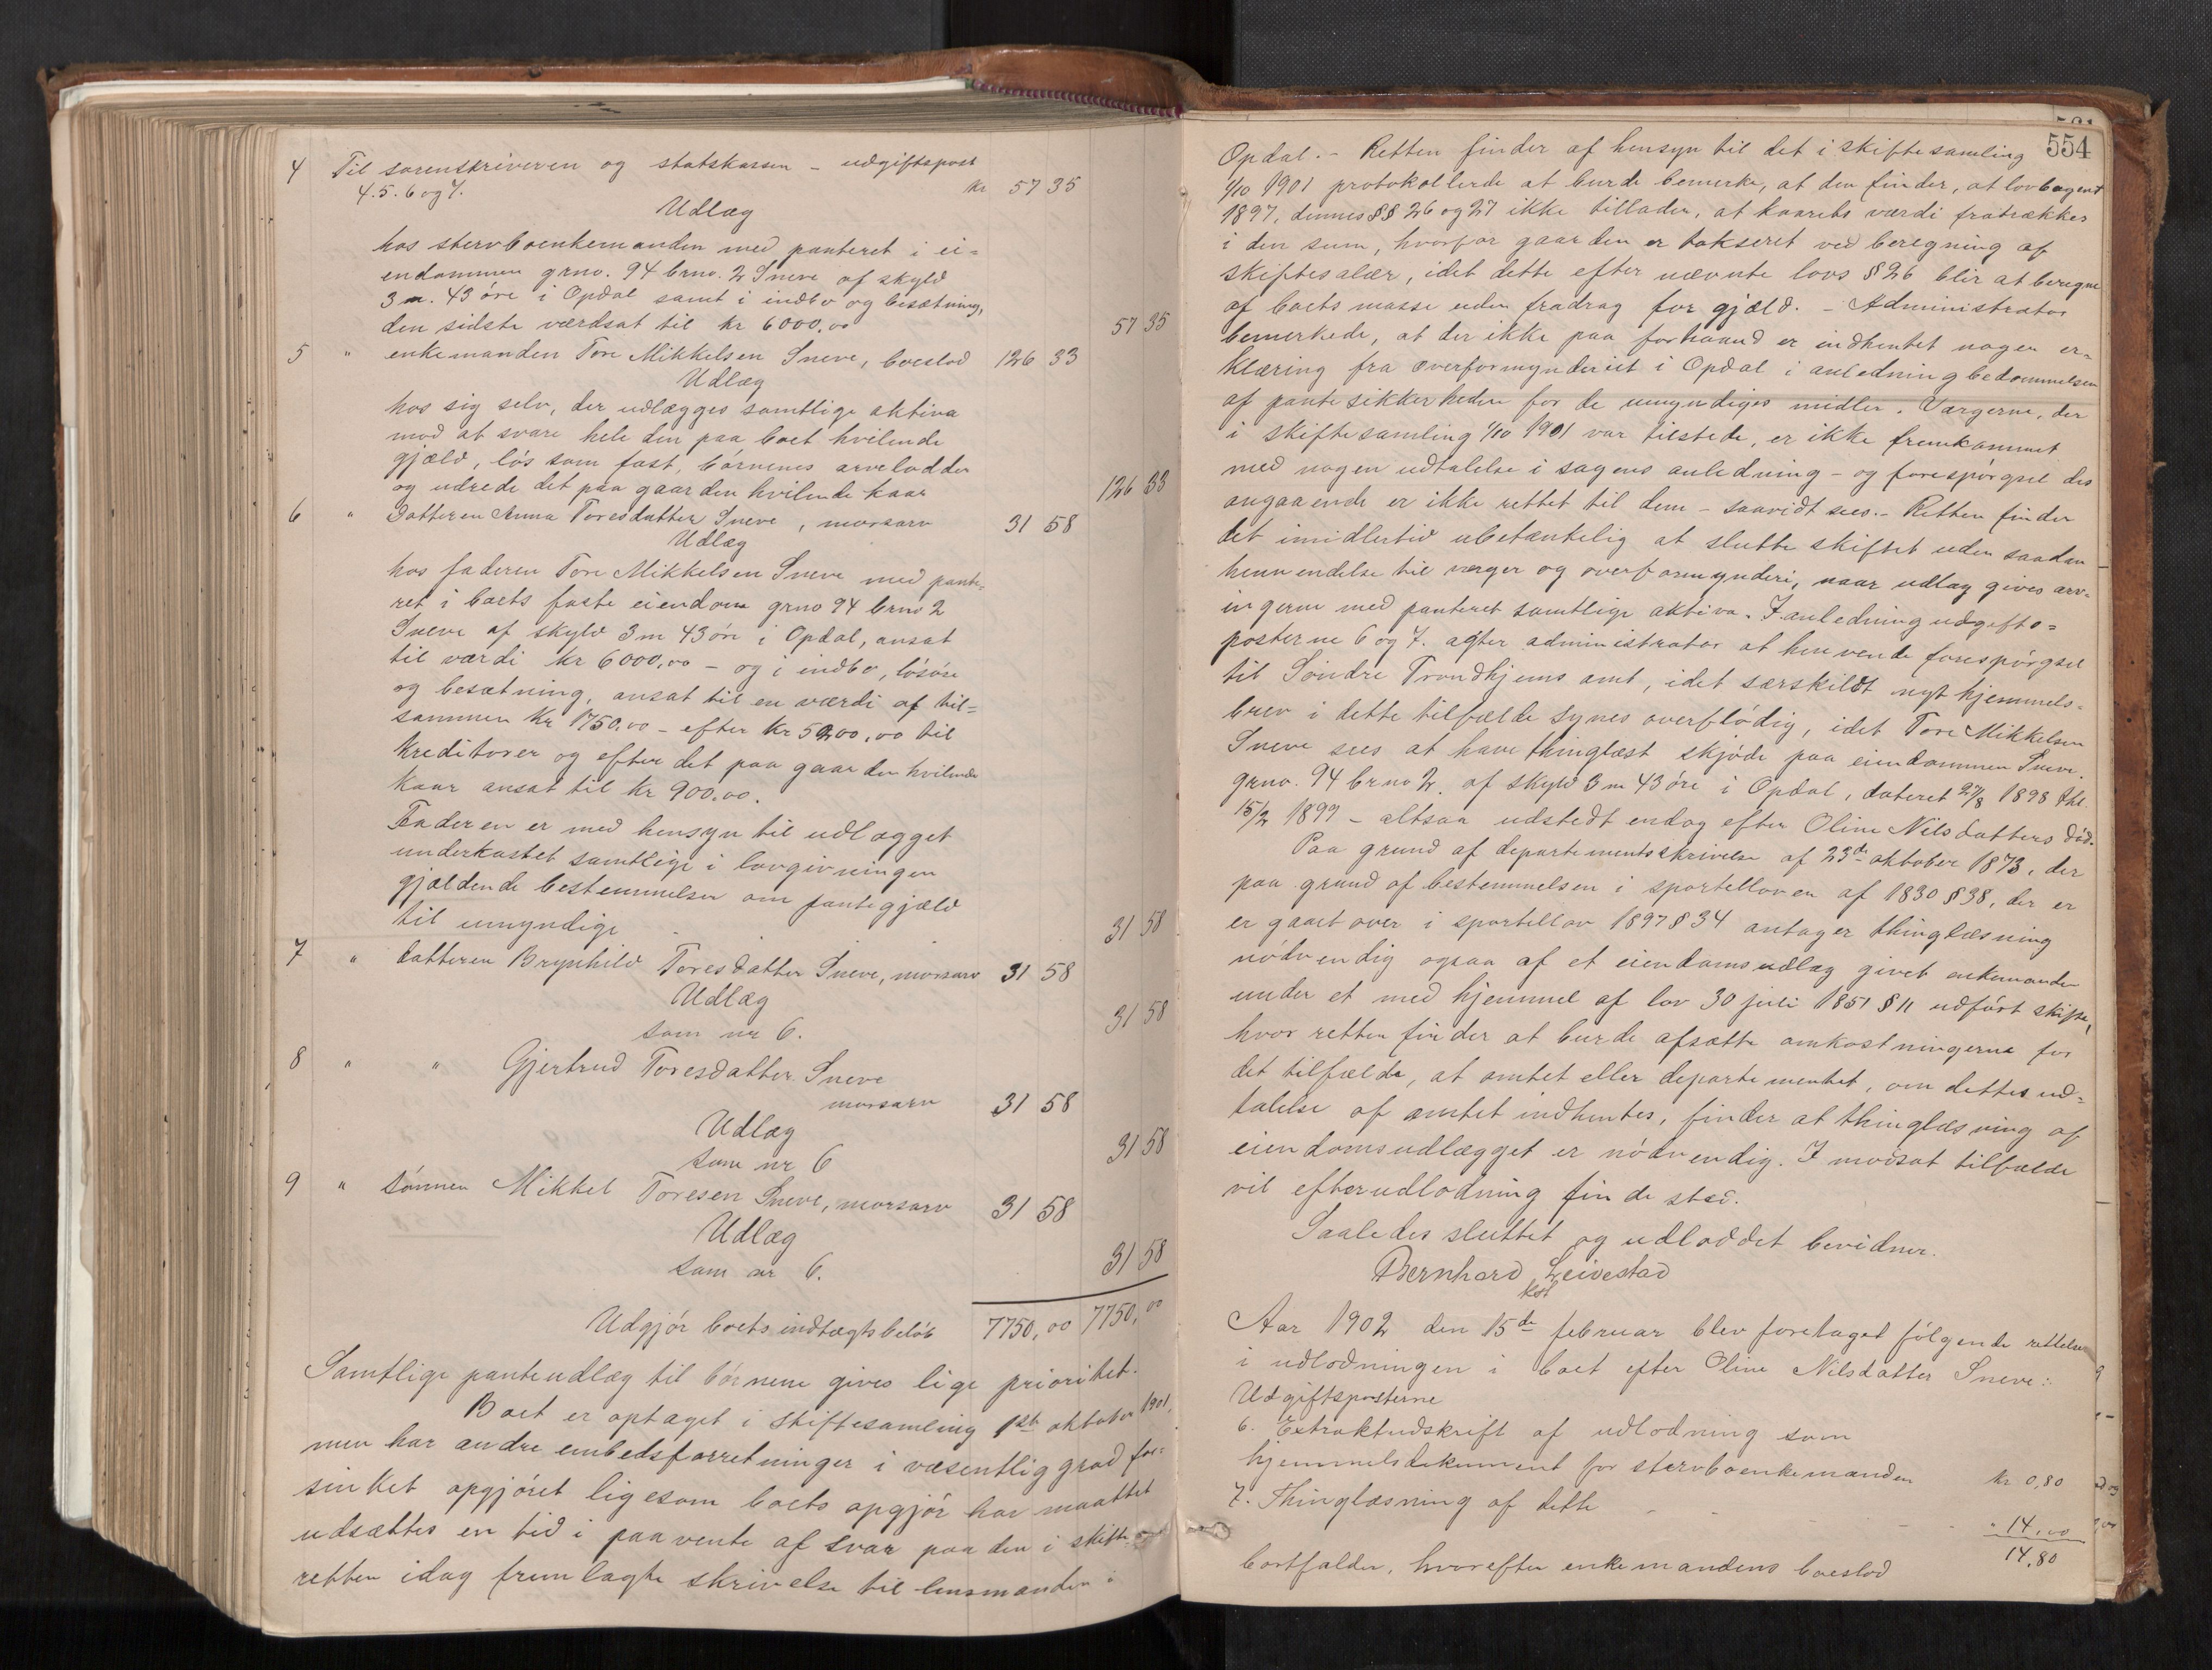 4 Til sorenskriveren og statskassen – udgiftspost
4.5.6 og 7. kr 57 35
Udlæg
hos stervboenkemanden med panteret i ei=
endommen grno. 94 brno. 2 Sneve af skyld
3 m. 43 öre i Opdal samt i indbo og besætning,
den sidste værdsat til kr 6000.00 57 35
5 " enkemanden Tore Mikkelsen Sneve, boeslod 126 33
Udlæg
hos sig selv, der udlægges samtlige aktiva
mod at svare hele den paa boet hvilende
gjæld, lös som fast, börnenes arvelodder
og udrede det paa gaarden hvilende kaar 126 33
6 " Datteren Anna Toresdatter Sneve, morsarv 31 58
Udlæg
hos faderen Tore Mikkelsen Sneve med pante=
ret i boets faste eiendom grno 94 brno 2
Sneve af skyld 3 m 43 öre i Opdal, ansat
til værdi kr 6000,00 – og i indbo, lösöre
og besætning, ansat til en værdi af til=
sammen kr 1750.00 – efter kr 5200,00 til
kreditorer og efter det paa gaarden hvilende
kaar ansat til kr 900.00.
Faderen er med hensyn til udlægget
underkastet samtlige i lovgivningen
gjældende bestemmelser om pantegjæld
til umyndige 31 58
7 " datteren Brynhild Toresdatter Sneve, morsarv 31 58
Udlæg
som nr 6. 31 58
8 " " Gjertrud Toresdatter Sneve
morsarv 31 58
Udlæg
som nr 6 31 58
9 " sönnen Mikkel Toresen Sneve, morsarv 31 58
Udlæg
som nr 6. 31 58
Udgjör boets indtægtsbelöb 7750,00 7750,00
Samtlige panteudlæg til börnene gives lige prioritet.
Boet er optaget i skiftesamling 1ste oktober 1901,
men har andre embedsforretninger i væsentlig grad for=
sinket opgjöret ligesom boets opgjör har maattet
udsættes en tid i paavente af svar paa den i skifte=
retten idag fremlagte skrivelse til lensmanden i
554
Opdal. – Retten finder af hensyn til det i skiftesamling
1/10 1901 protokollerede at burde bemerke, at den finder, at lov 6 august
1897, dennes §§ 26 og 27 ikke tillader, at kaarets værdi fratrækkes
i den sum, hvorfor gaarden er takseret ved beregning af
skiftesalær, idet dette efter nævnte lovs § 26 blir at beregne
af boets masse uden fradrag for gjæld. – Administrator
bemerkede, at der ikke paa forhaand er indhentet nogen er=
klæring fra overformynderiet i Opdal i anledning bedömmelsen
af pantesikkerheden for de umyndiges midler. Værgerne, der
i skiftesamling 1/10 1901 var tilstede, er ikke fremkommet
med nogen udtalelse i sagens anledning – og forespörgsel des
angaaende er ikke rettet til dem – saavidt sees. – Retten finder
det imidlertid ubetænkelig at slutte skiftet uden saadan
henvendelse til værger og overformynderi, naar udlæg gives arv=
ingerne med panteret samtlige aktiva. I anledning udgifts=
posterne 6 og 7. agter administrator at henvende forespörgsel
til Söndre Trondhjems amt, idet særskildt nyt hjemmels=
brev i dette tilfælde synes overflödig, idet Tore Mikkelsen
Sneve sees at have thinglæst skjöde paa eiendommen Sneve.
grno. 94 brno 2. af skyld 3 m 43 öre i Opdal, dateret 27/8 1898 thl.
15/2 1899 – altsaa udstedt endog efter Oline Nilsdatters död.
Paa grund af departementsskrivelse af 23de oktober 1873, der
paa grund af bestemmelsen i sportelloven af 1830 § 38, der er
er gaaet over i sportellov 1897 § 34 antager thinglæsning
nödvendig ogsaa af et eiendomsudlæg givet enkemanden
under et med hjemmel af lov 30 juli 1851 § 11 udfört skifte,
hvor retten finder at burde afsætte omkostningerne for
det tilfælde, at amtet eller departementet, om dettes ud=
talelse af amtet indhentes, finder at thinglæsning af
eiendomsudlægget er nödvendig. I modsat tilfælde
vil efterudlodning finde sted.
Saaledes sluttet og udloddet bevidner.
Bernhard Leivestad
kst
Aar 1902 den 15de februar blev foretaget fölgende rettelse
i udlodningen i boet efter Oline Nilsdatter Sneve:
Udgiftsposterne
6. Extraktudskrift af udlodning som
hjemmelsdokument for stervboenkemanden kr 0,80
7. Thinglæsning af dette – – – " 14,00
14,80
bortfalder, hvorefter enkemandens boeslod